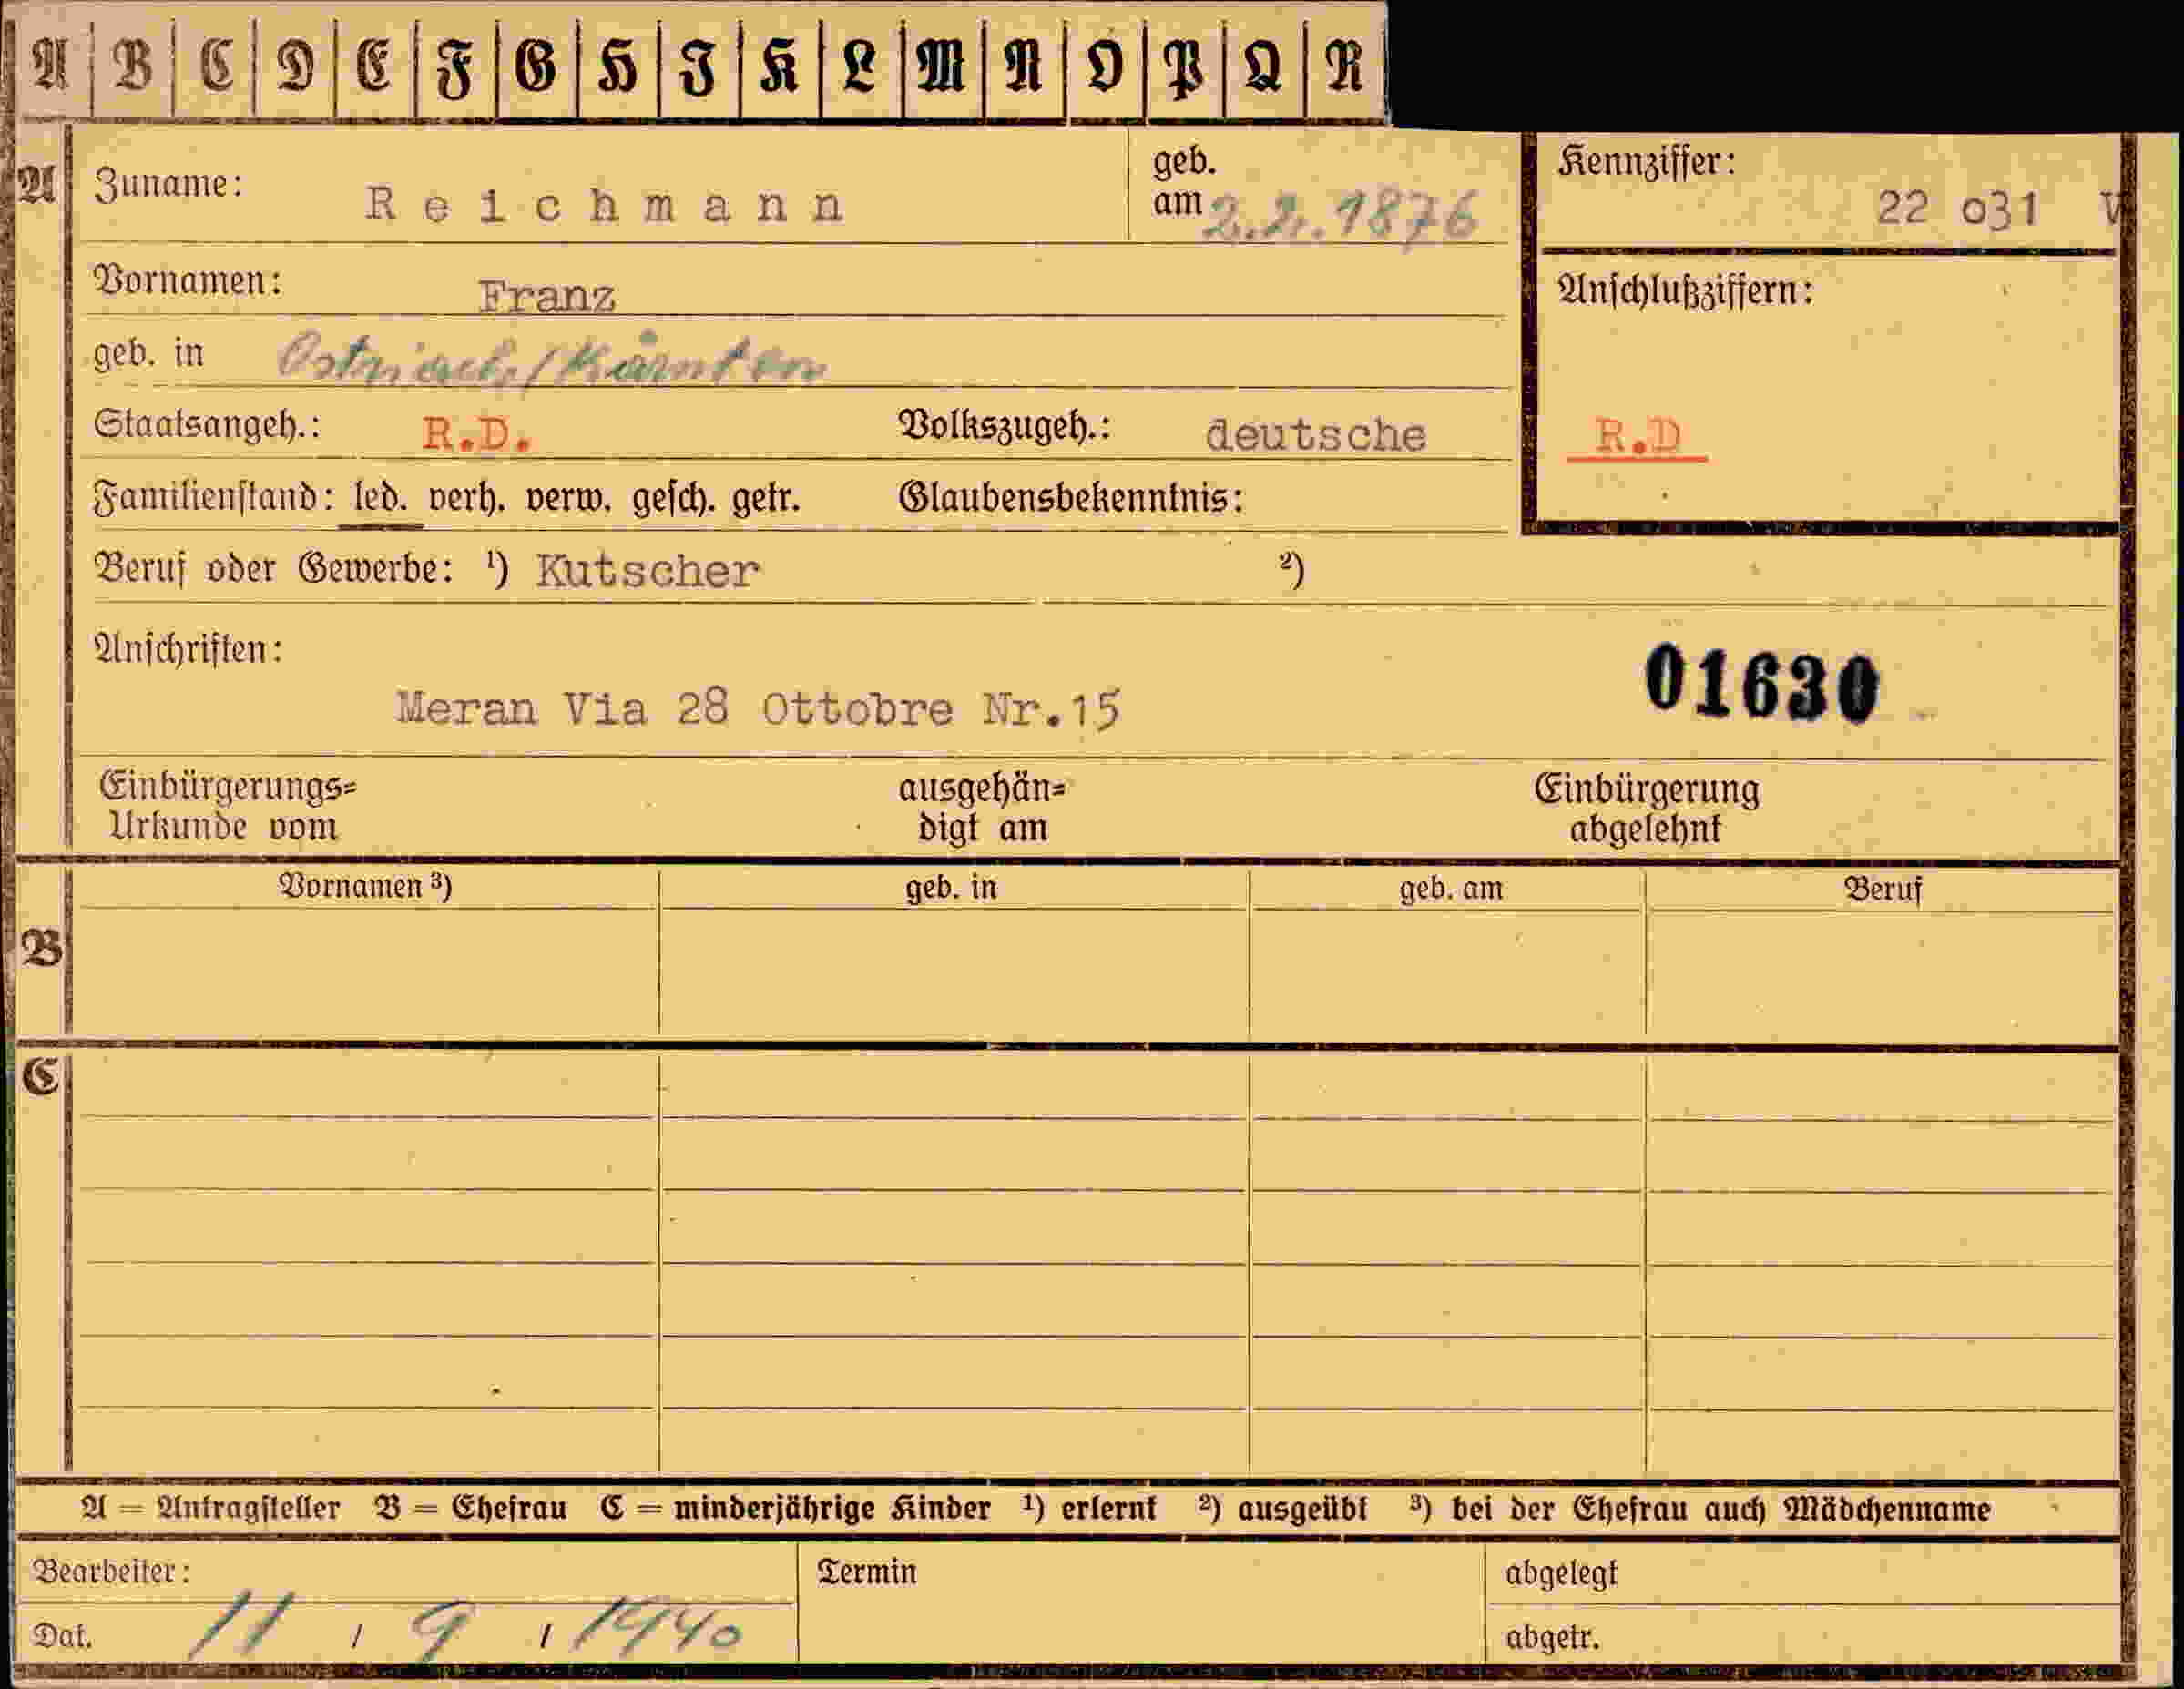 A B C D E F G H I K L M N O P Q R
A Zuname: Reichmann geb. am 2.2.1876 Kennziffer: 22 o31 V
Vornamen: Franz Anschlußziffern:
geb. in Ostriach/Kärnten
Staatsangeh.: R.D. Volkszugeh.: deutsche R.D
Familienstand: led. verh. verw. gesch. getr. Glaubensbekenntnis:
Beruf oder Gewerbe: ¹) Kutscher ²)
Anschriften:
01630
Meran Via 28 Ottobre Nr.15
Einbürgerungs= ausgehän= Einbürgerung
Urkunde vom digt am abgelehnt
Vornamen ³) geb. in geb. am Beruf
B
C
A = Antragsteller B = Ehefrau C = minderjährige Kinder ¹) erlernt ²) ausgeübt ³) bei der Ehefrau auch Mädchenname
Bearbeiter: Termin abgelegt
Dat. 11 / 9 / 1940 abgetr.